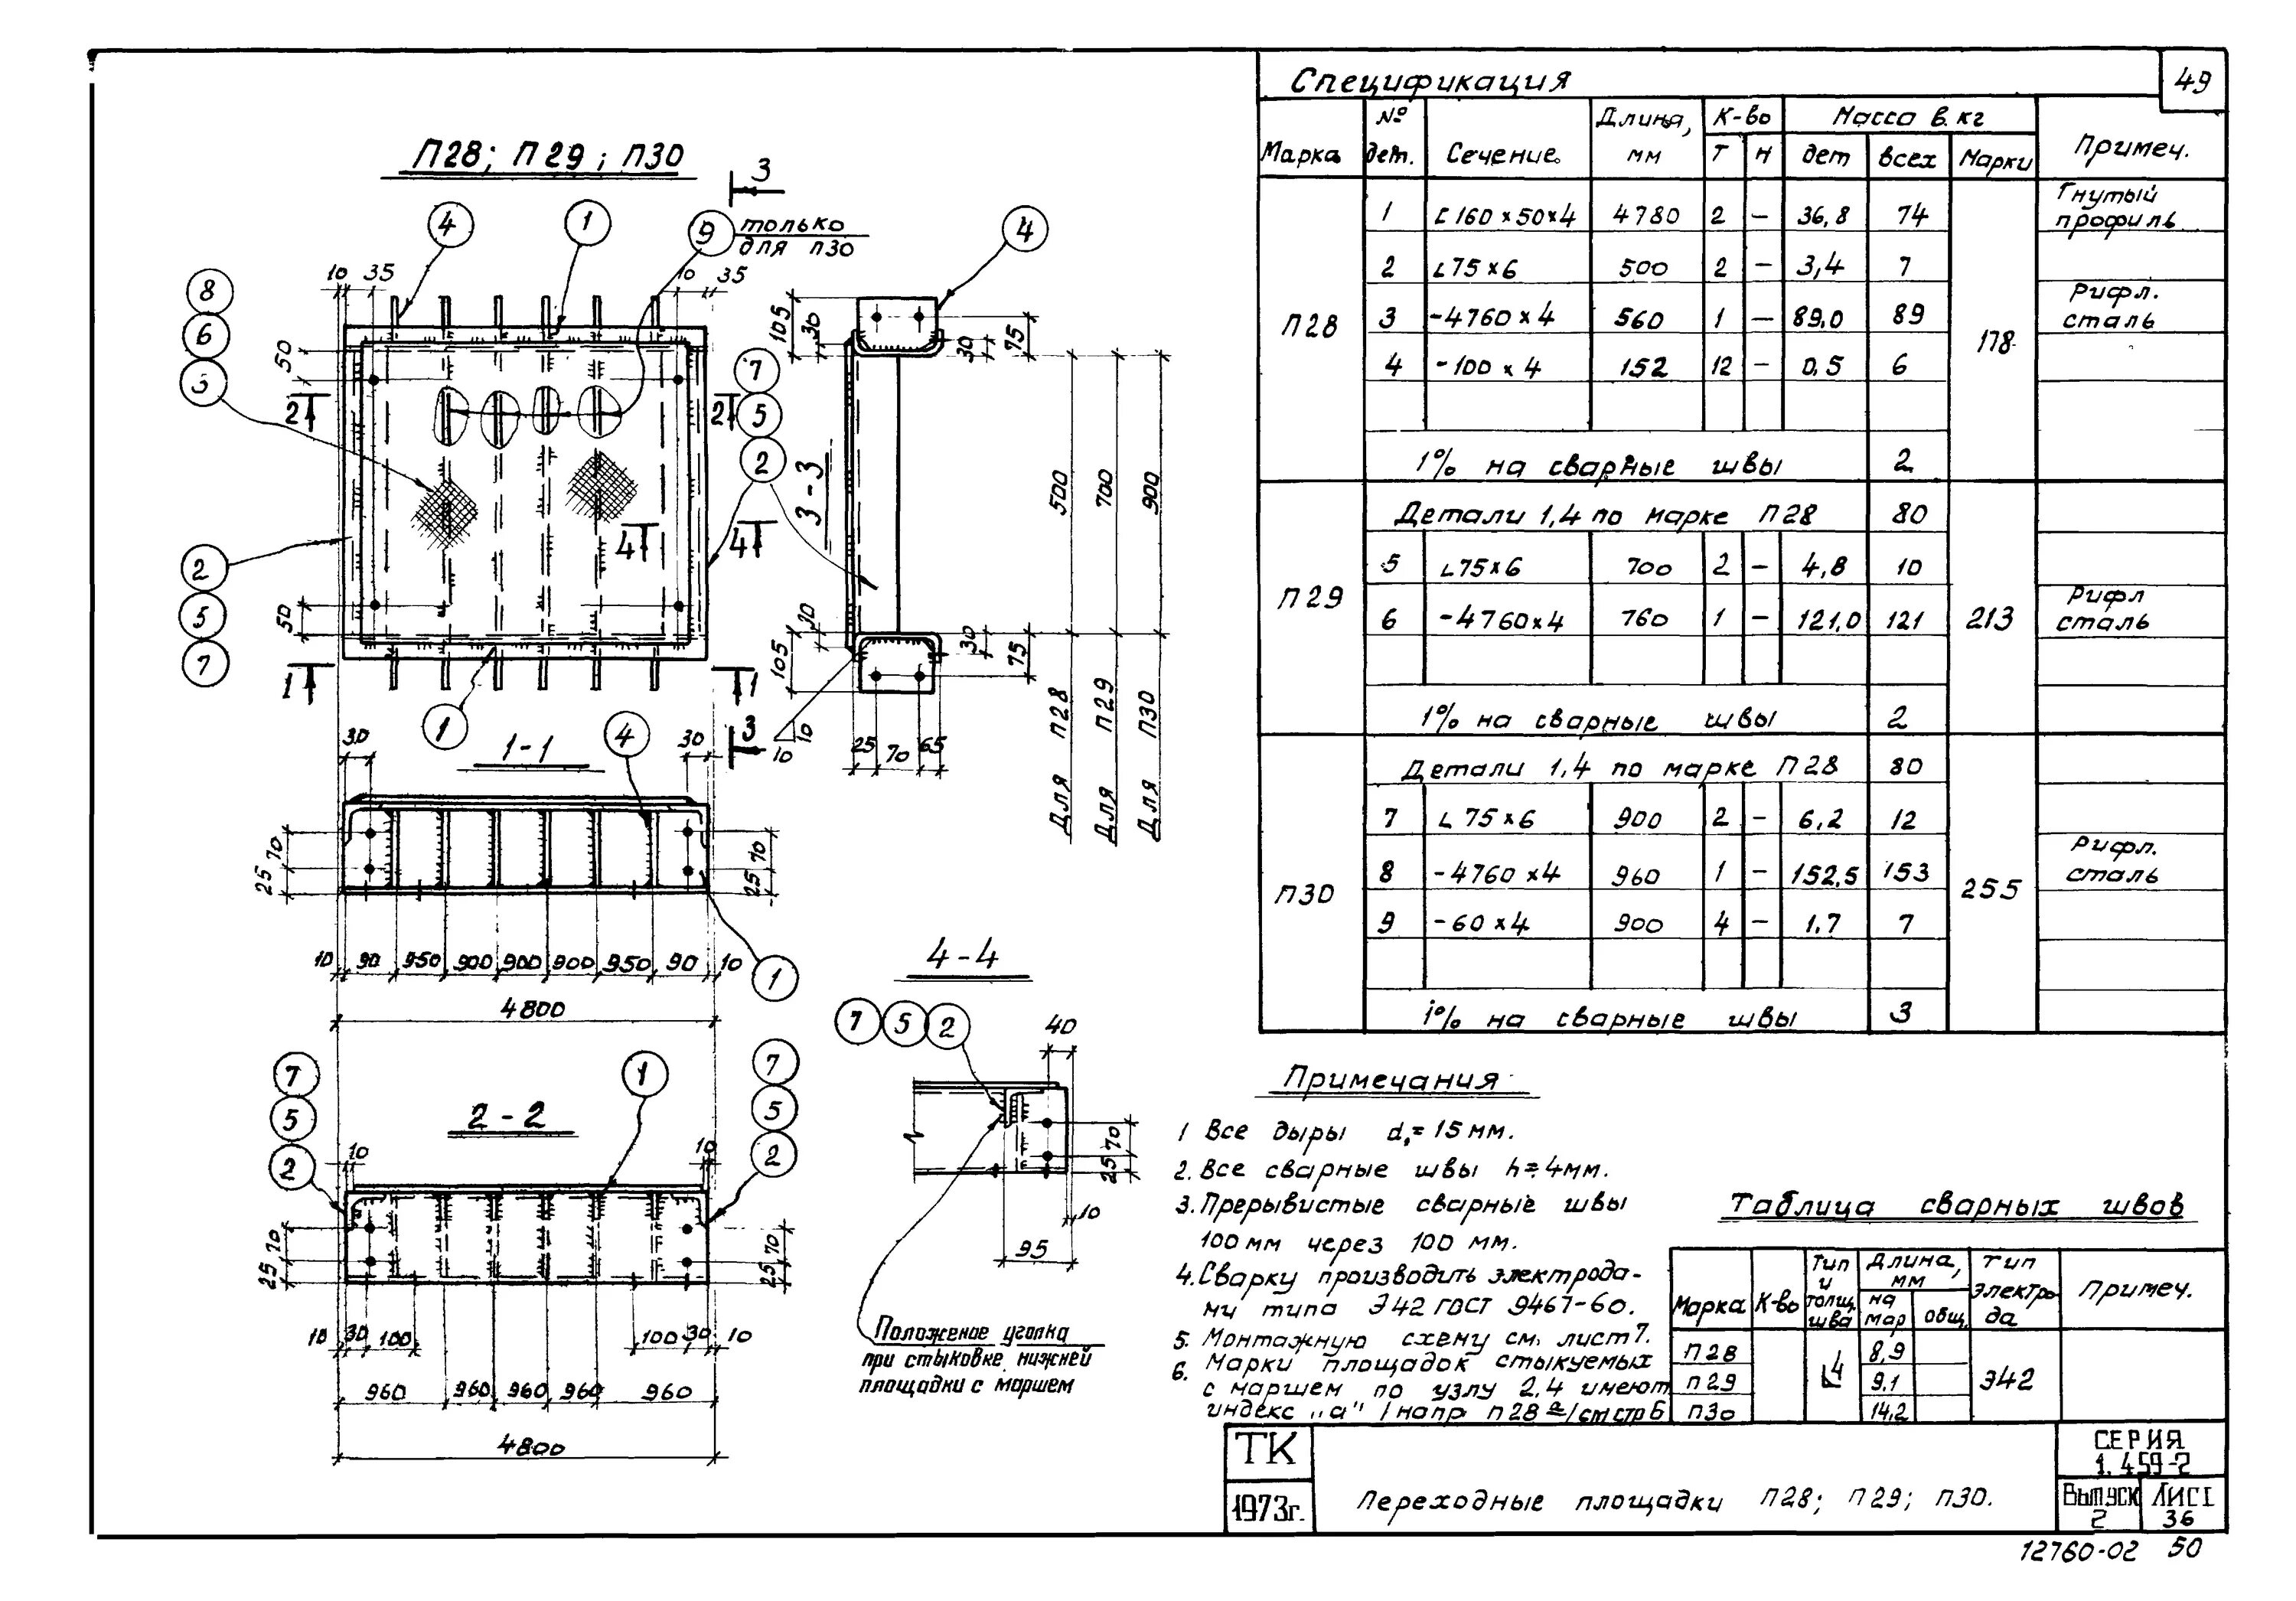 49
П28; П29; П30
3
4
1
9 только
для П30
4
10 35
10 35
8
6
3
50
2
2
7
5
2
4
4
2
5
7
50
1
1
1
3
105
30
30
75
3-3
500
700
900
30
105
30
75
10
10
25 70 65
Для П28
Для П29
Для П30
1-1
4
30
30
70
25
70
25
10 90 950 900 900 900 950 90 10
1
4800
2-2
7
5
2
1
7
5
2
10
10
70
25
70
25
10 30 100
100 30 10
960 960 960 960 960
4800
4-4
7 5 2
40
70
25
10
95
Положение уголка
при стыковке нижней
площадки с маршем
Спецификация
Марка № дет. Сечение Длина, мм К-во Т Н Масса в кг дет всех Марки Примеч.
П28 1 [ 160×50×4 4780 2 – 36,8 74 178 Гнутый профиль
2 ∟75×6 500 2 – 3,4 7
3 -4760×4 560 1 – 89,0 89 Рифл. сталь
4 -100×4 152 12 – 0,5 6
1% на сварные швы 2
П29 Детали 1,4 по марке П28 80 213
5 ∟75×6 700 2 – 4,8 10
6 -4760×4 760 1 – 121,0 121 Рифл сталь
1% на сварные швы 2
П30 Детали 1,4 по марке П28 80 255
7 ∟75×6 900 2 – 6,2 12
8 -4760×4 960 1 – 152,5 153 Рифл. сталь
9 -60×4 900 4 – 1,7 7
1% на сварные швы 3
Примечания
1 Все дыры d₁=15 мм.
2. Все сварные швы h=4мм.
3. Прерывистые сварные швы
100мм через 100 мм.
4. Сварку производить электрода-
ми типа Э42 ГОСТ 9467-60.
5. Монтажную схему см. лист 7.
6. Марки площадок стыкуемых
с маршем по узлу 2,4 имеют
индекс „а" /напр П28а/ см стр Б
Таблица сварных швов
Марка К-во Тип и толщ. шва Длина, мм на мар Общ. Тип электро-да Примеч.
П28 4 8,9 Э42
П29 9,1
П30 14,2
ТК
1973г.
Переходные площадки П28; П29; П30.
СЕРИЯ
1.459-2
Выпуск 2
Лист 36
12760-02 50